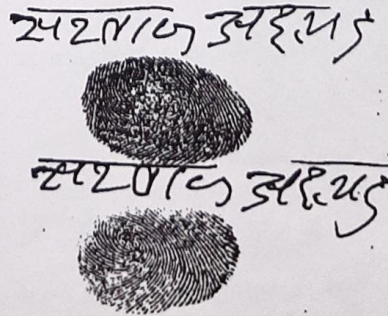 सरताज अहमद
सरताज अहमद